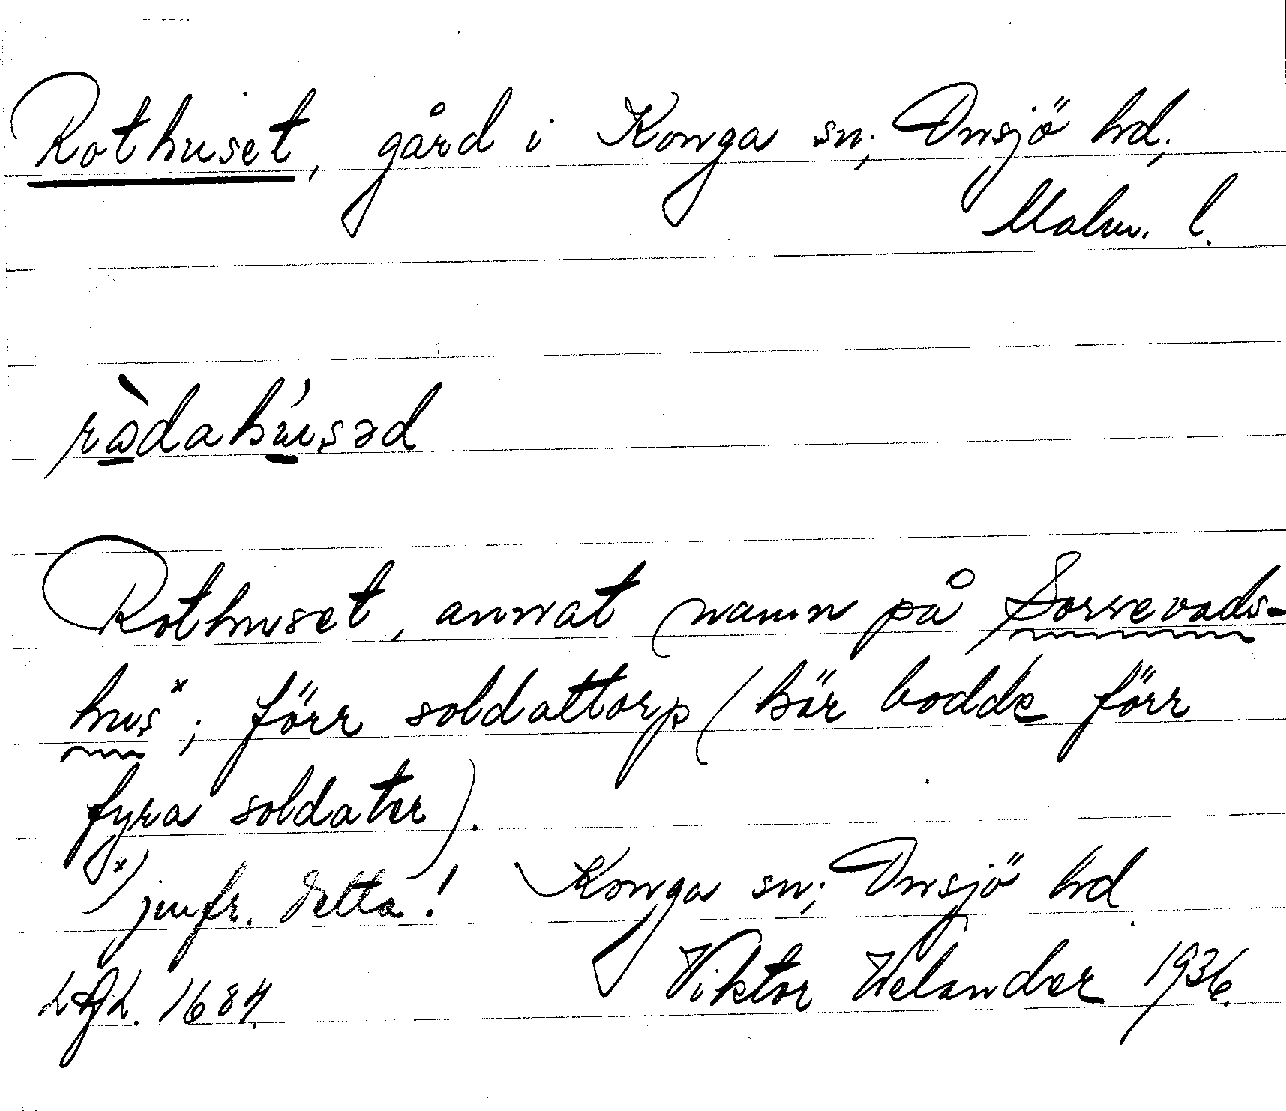 Rothuset, gård i Konga sn; Onsjö hd,
Malm. l.
ròdahúsəd
Rothuset, annat namn på Sorrevads-
hus x; förr soldattorp (här bodde förr
fyra soldater).
x) jmfr. detta! Konga sn; Onsjö hd
1684. Viktor Welander 1936.